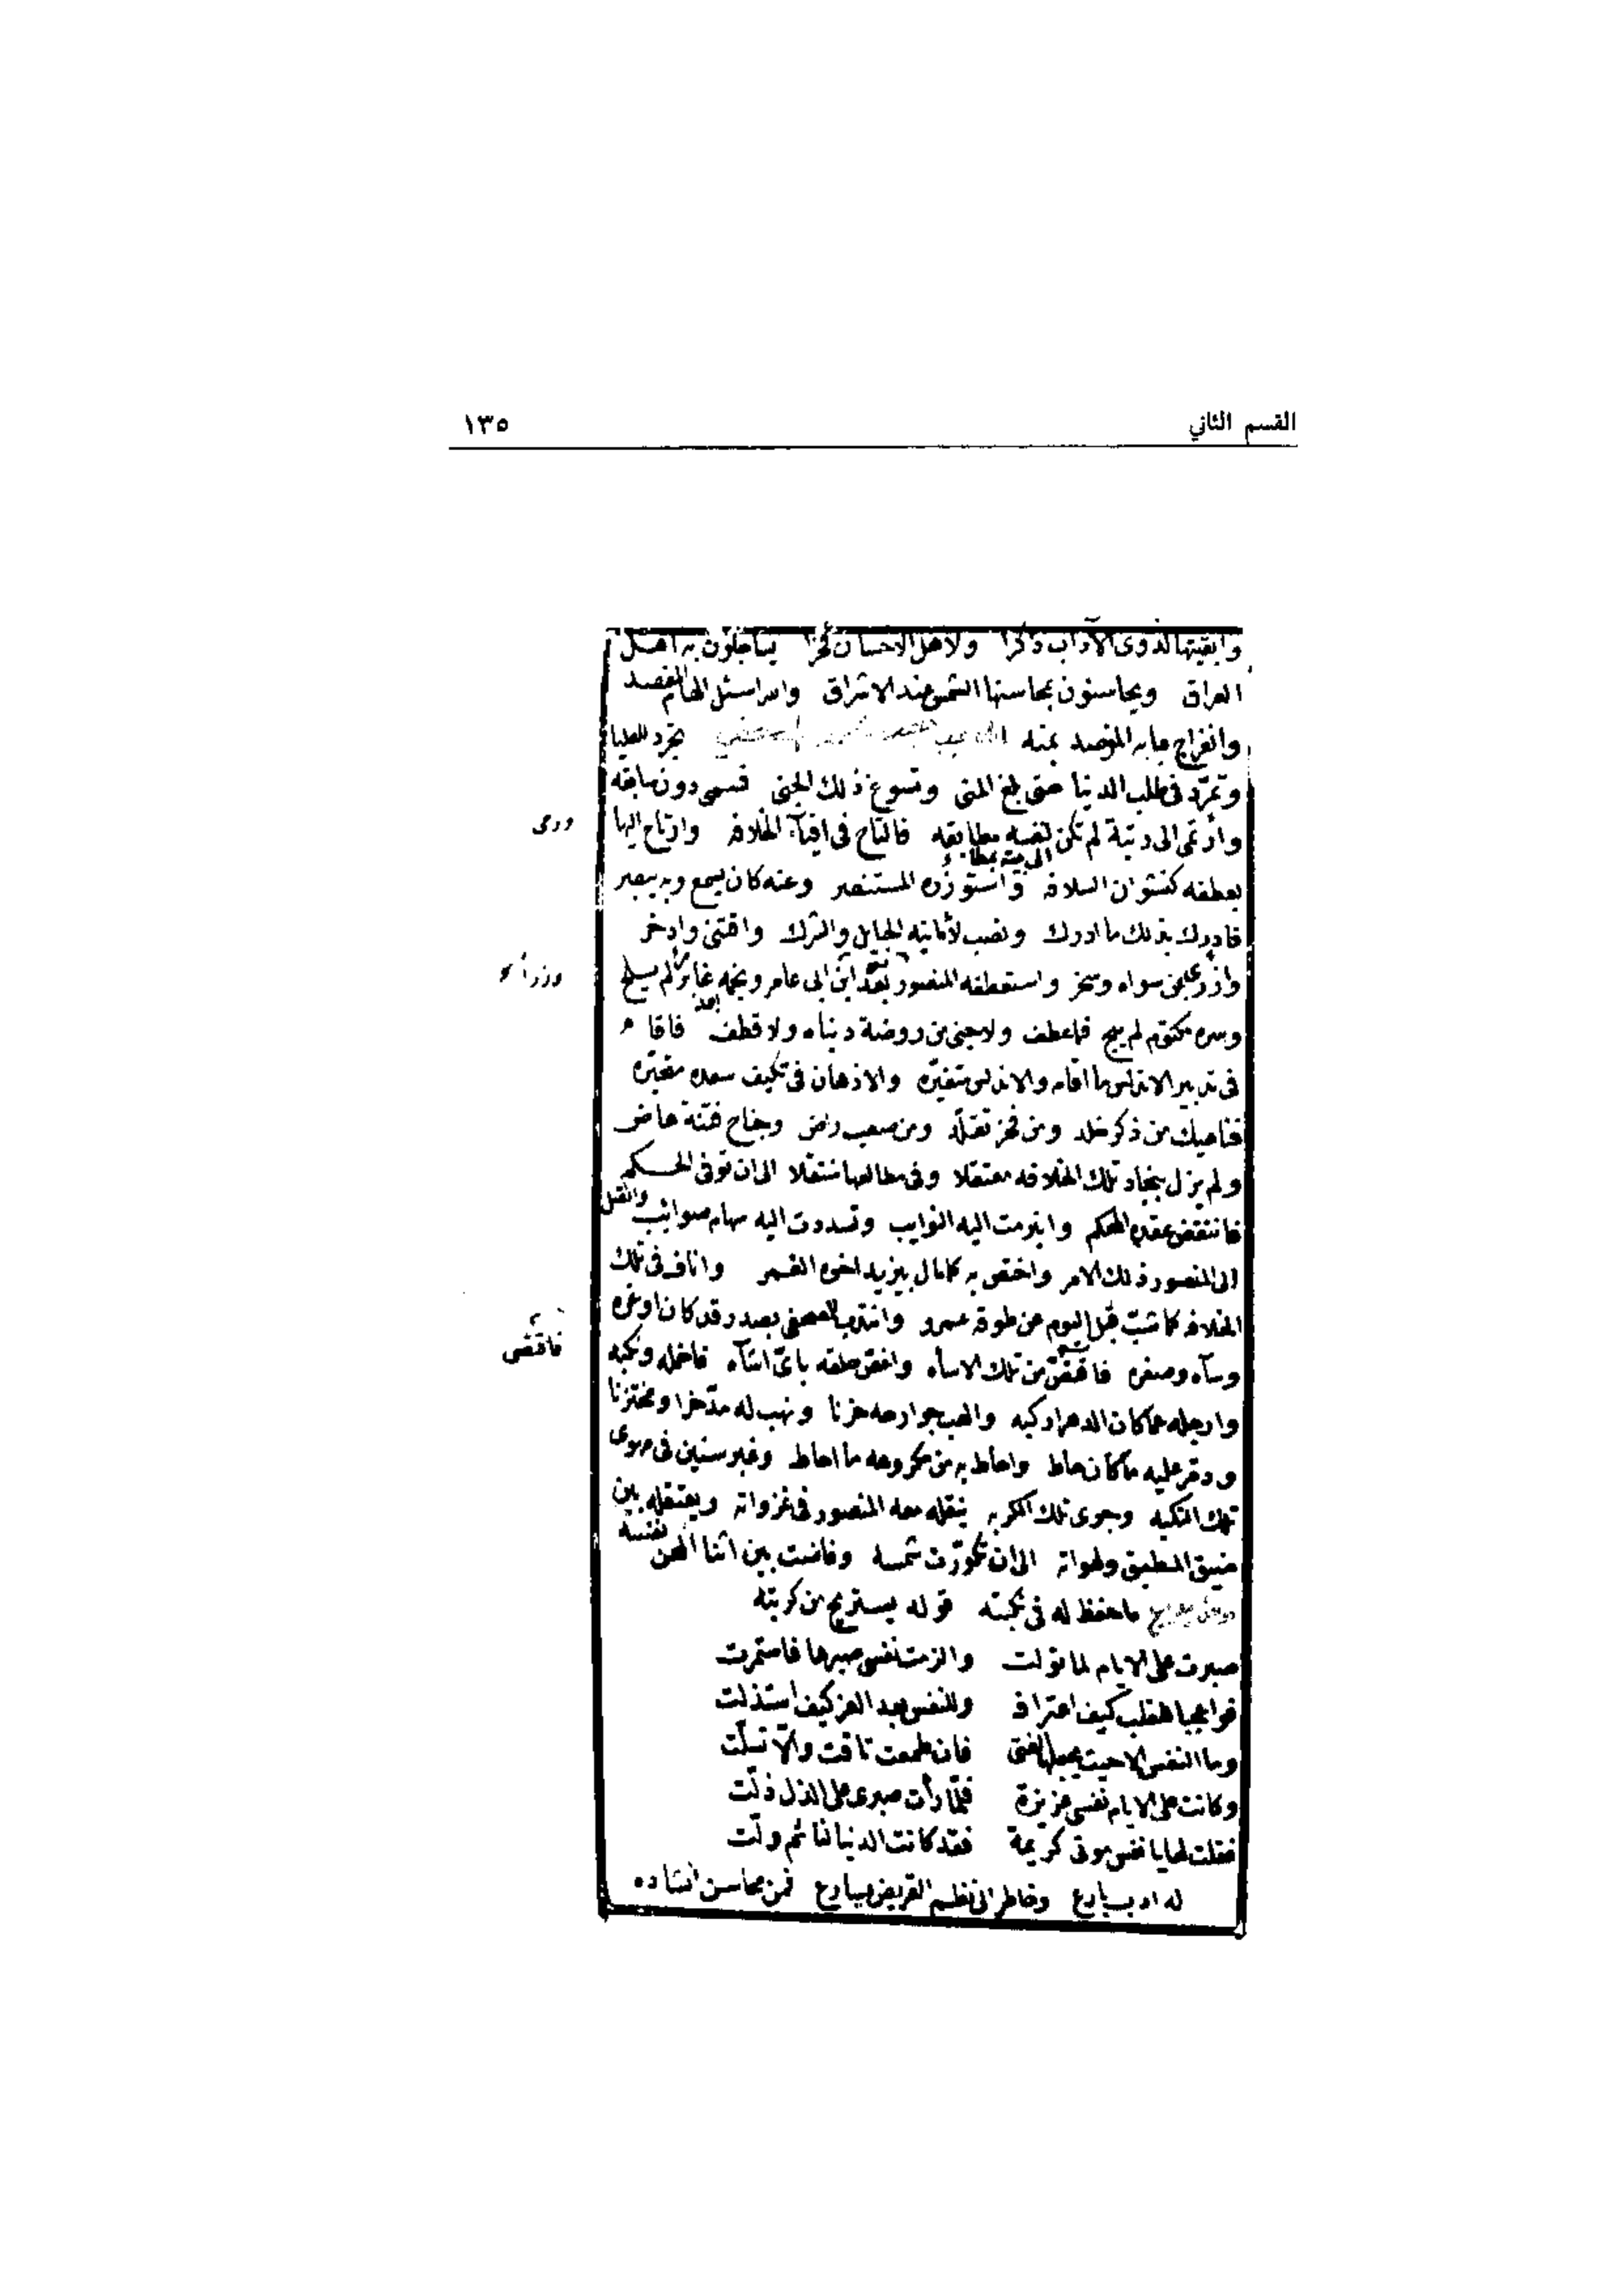 القسم الثاني
١٣٥
وابقيتها لذوى الآداب ذكرا ولاهل الاحسان فخرا يساجلون به اهل
العراق ويحاسنون بمحاسنها الشمس عند الاشراق والله اسئل الهام المقصد
وانفراج بابه الموصد بمنه تجرد للعليا
وتمرّد فى طلب الدنيا حتى بلغ المنى وتسوغ ذلك الجنى فسمى دون سابقه
ورمى
وارتمى الى رتبة لم تكن لنفسه مطابقه فالتاح فى افيآء الخلافه وارتاح اليها
بعطفه كنشوان السلافه واستوزره المستنصر وعنه كان يسمع وبه يبصر
فادرك بذلك ما ادرك ونصب لأمانيه الحبايل والشرك واقتنى وادخر
وازرى بمن سواه وسخر واستعطفه المنصور بن ابى عامر ونجمه غاير لم يلح
وسره مكتوم لم يبح فما عطف ولا جنى من روضة دنياه ولا قطف فاقام
فى تدبير الاندلس ما اقام والاندلس متغيّره والاذهان فى تكيف سعده متحيّره
فناهيك من ذكر خلد ومن فخر تقلّد ومن صعب راض وجناح فتنة هاض
ولم يزل بنجاد تلك الخلافه معتقلا وفى مطالعها منتقلا الى ان توفى الحكم
فانتقض عقده المحكم وانبرمت اليه النوايب وتسددت اليه سهام صوائب وانتقل
الى المنصور ذلك الامر واختص به كما مال بيزيد اخوه الغمر واناف فى تلك
الخلافه كما شبّ قبل اليوم عن طوقه عمرو وانتدب للمصحفى بصدر قد كان اوغره
فاقتضى
وسآه وصغره فاقتصّ من تلك الاسأه واغص حلقه باىّ اشآه فاخمله ونكبه
وارجله عما كان الدهر اركبه والهب جوارحه حزنا ونهب له مدّخرا ومختزنا
ودمّر عليه ما كان حاط واحاط به من مكروهه ما احاط وغبر سنين فى مهوى
تلك النكبه وجوى تلك الكربه ينقله معه المنصور فى غزواته ويعتقله بين
ضيق المطبق ولهواته الى ان تكورّت شمسه وفاضت بين اثنا المحن نفسه
ما حفظ له فى نكبته قوله يستريح من كربته
صبرت على الايام لما تولت والزمت نفسى صبرها فاستمرت
فوا عجبا للقلب كيف اعترافه وللنفس بعد العز كيف استذلت
وما النفس الا حيث يجعلها الفتى فان طمعت تاقت والّا تسلّت
وكانت على الايام نفسى عزيزة فلمّا رأت صبرى على الذل ذلّت
فقلت لها يا نفس موتى كريمة فقد كانت الدنيا لنا ثم ولّت
له ادب بارع وخاطر الى نظم القريض يسارع فمن محاسن انشاده